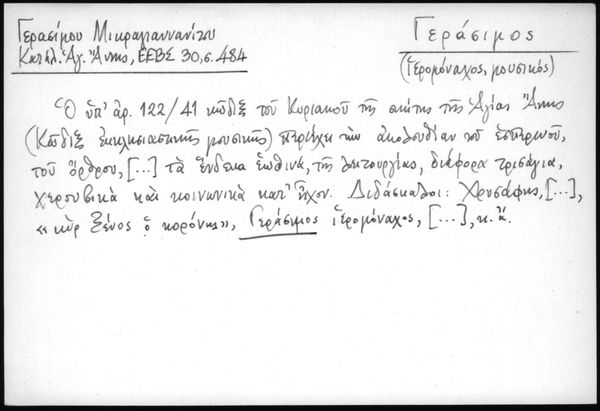 Γερασίμου Μικραγιαννανίτου
Κατάλ. Ἁγ. Ἄννης, ΕΕΒΣ 30, σ. 484
Γεράσιμος
(ἱερομόναχος, μουσικός)
Ὁ ὑπ' ἀρ. 122/41 κῶδιξ τοῦ Κυριακοῦ τῆς σκήτης τῆς Ἁγίας Ἄννης
(Κῶδιξ ἐκκλησιαστικῆς μουσικῆς) περιέχει τὴν ἀκολουθίαν τοῦ ἑσπερινοῦ,
τοῦ ὄρθρου, [...] τὰ ἕνδεκα ἑωθινά, τῆς λειτουργίας, διάφορα τρισάγια,
χερουβικὰ καὶ κοινωνικὰ κατ' ἦχον. Διδάσκαλοι: Χρυσάφης, [...],
«κὺρ Ξένος ὁ κορώνης», Γεράσιμος ἱερομόναχος, [...], κ. ἄ.